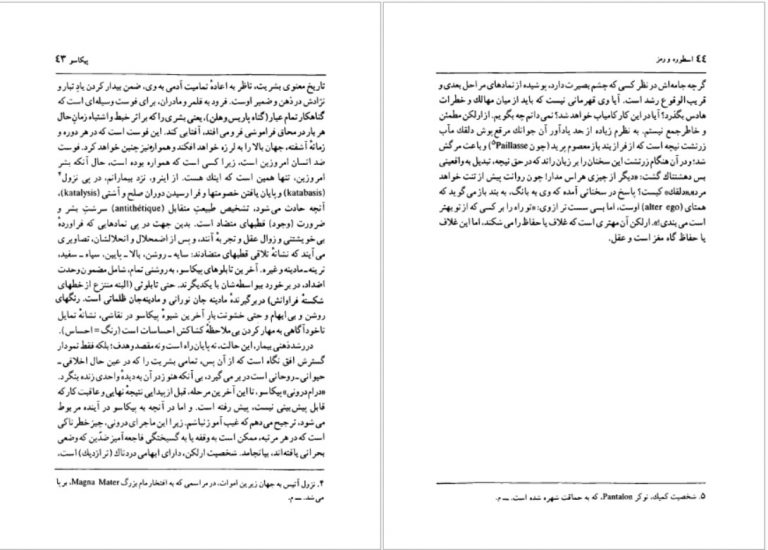 پیکاسو ۴۳
تاریخ معنوی بشریت، ناظر به اعادهٔ تمامیت آدمی به وی، ضمن بیدار کردن یادِ تبار و
نژادش در ذهن و ضمیر اوست. فرود به قلمرو مادران، برای فوست وسیله‌ای است که
گناهکار تمام عیار (گناه پاریس و هلن)، یعنی بشری را که بر اثر خبط و اشتباه زمانِ حال
هر بار در محاق فراموشی فرو می‌افتد، آفتابی کند. این فوست است که در هر دوره و
زمانهٔ آشفته، جهان بالا را به لرزه خواهد افکند و همواره نیز چنین خواهد کرد. فوست
ضد انسان امروزین است، زیرا کسی است که همواره بوده است، حال آنکه بشر
امروزین، تنها همین است که اینک هست. از اینرو، نزد بیمارانم، در پی نزول۴
(katabasis) و پایان یافتن خصومتها و فرا رسیدن دوران صلح و آشتی (katalysis)،
آنچه حادث می‌شود، تشخیص طبیعتِ متقابل (antithétique) سرشتِ بشر و
ضرورت (وجود) قطبهای متضاد است. بدین جهت در پی نمادهایی که فراوردهٔ
بی‌خویشتنی و زوال عقل و تجربه آنند، و پس از اضمحلال و انحلالشان، تصاویری
می‌آیند که نشانهٔ تلاقی قطبهای متضادند: سایه ـ روشن، بالا ـ پایین، سپاه ـ سفید،
نرینه ـ مادینه و غیره. آخرین تابلوهای پیکاسو، به روشنی تمام، شامل مضمون وحدت
اضداد، در برخورد بیواسطه‌شان با یکدیگرند. حتی تابلوئی (البته منتزع از خطهای
شکستهٔ فراوانش) دربرگیرندهٔ مادینه جان نورانی و مادینه‌جان ظلماتی است. رنگهای
روشن و بی‌ابهام و حتی خشونت بار آخرین شیوهٔ پیکاسو در نقاشی، نشانهٔ تمایل
ناخودآگاهی به مهار کردن بی‌ملاحظهٔ کشاکش احساسات است (رنگ = احساس).
در رشد ذهنی بیمار، این حالت، نه پایان راه است و نه مقصد و هدف؛ بلکه فقط نمودار
گسترش افق نگاه است که از آن پس، تمامی بشریت را که در عین حال اخلاقی ـ
حیوانی ـ روحانی است در بر می‌گیرد، بی‌آنکه هنوز در آن به دیدهٔ واحدی زنده بنگرد.
«درام درونی» پیکاسو، تا این آخرین مرحله، قبل از پیدایی نتیجهٔ نهایی و عاقبت کار که
قابل پیش‌بینی نیست، پیش رفته است. و اما در آنچه به پیکاسو در آینده مربوط
می‌شود، ترجیح می‌دهم که غیب‌آموز نباشم. زیرا این ماجرای درونی، چیز خطرناکی
است که در هر مرتبه، ممکن است به وقفه یا به گسیختگی فاجعه‌آمیز ضدّین که وضعی
بحرانی یافته‌اند، بیانجامد. شخصیت ارلکن، دارای ابهامی دردناک (تراژدیک) است،
۴. نزول آتیس به جهان زیرین اموات، در مراسمی که به افتخار مام بزرگ Magna Mater، برپا
می‌شد. ـ م.
۴۴ اسطوره و رمز
گرچه جامه‌اش در نظر کسی که چشم بصیرت دارد، پوشیده از نمادهای مراحل بعدی و
قریب‌الوقوع رشد است. آیا وی قهرمانی نیست که باید از میان مهالک و خطرات
هادس بگذرد؟ آیا در این کار کامیاب خواهد شد؟ نمی‌دانم چه بگویم. از ارلکن مطمئن
و خاطرجمع نیستم. به نظرم زیاده از حد یادآور آن جوانک مرقع‌پوش دلقک مآب
زرتشت نیچه است که از فراز بندباز معصوم پرید (چون Paillasse۵) و باعث مرگش
شد؛ و در آن هنگام زرتشت این سخنان را بر زبان راند که در حق نیچه، تبدیل به واقعیتی
بس دهشتناک گشت: «دیگر از چیزی هراس مدار! چون روانت پیش از تنت خواهد
مرد». «دلقک» کیست؟ پاسخ در سخنانی آمده که وی به بانگ، به بندباز می‌گوید که
همتای (alter ego) اوست، اما بسی سست‌تر از وی: «تو راه را بر کسی که از تو بهتر
است می‌بندی!». ارلکن آن مهتری است که غلاف یا حفاظ را می‌شکند، اما این غلاف
یا حفاظ گاه مغز است و عقل.
۵. شخصیت کمیک، نوکر Pantalon، که به حماقت شهره شده است. ـ م.